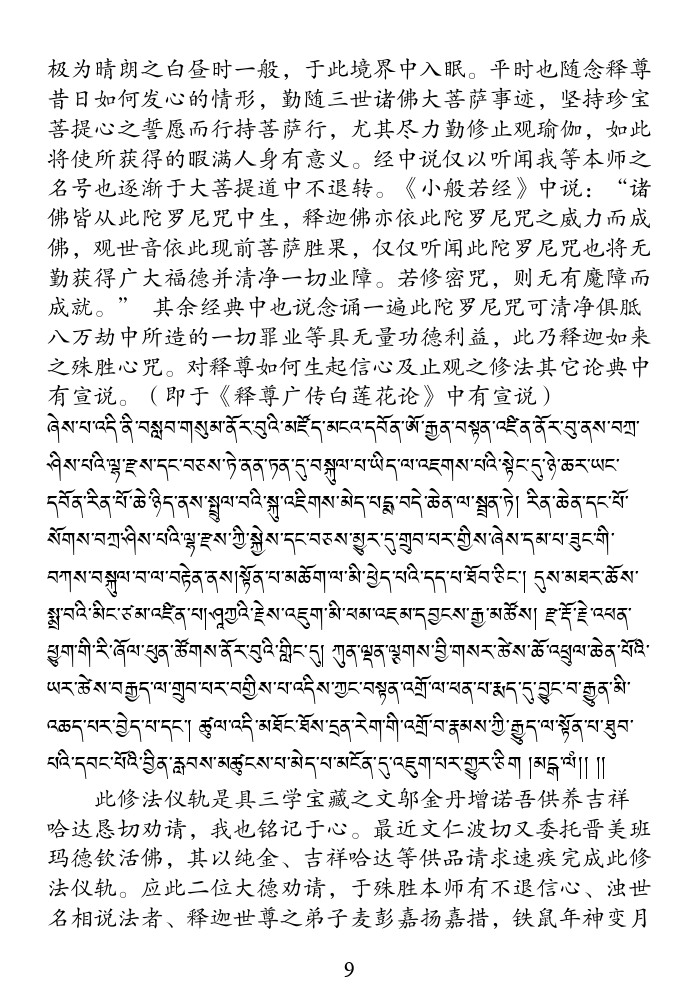 极为晴朗之白昼时一般，于此境界中入眠。平时也随念释尊
昔日如何发心的情形，勤随三世诸佛大菩萨事迹，坚持珍宝
菩提心之誓愿而行持菩萨行，尤其尽力勤修止观瑜伽，如此
将使所获得的暇满人身有意义。经中说仅以听闻我等本师之
名号也逐渐于大菩提道中不退转。《小般若经》中说：“诸
佛皆从此陀罗尼咒中生，释迦佛亦依此陀罗尼咒之威力而成
佛，观世音依此现前菩萨胜果，仅仅听闻此陀罗尼咒也将无
勤获得广大福德并清净一切业障。若修密咒，则无有魔障而
成就。” 其余经典中也说念诵一遍此陀罗尼咒可清净俱胝
八万劫中所造的一切罪业等具无量功德利益，此乃释迦如来
之殊胜心咒。对释尊如何生起信心及止观之修法其它论典中
有宣说。（即于《释尊广传白莲花论》中有宣说）
ཞེས་པ་འདི་ནི་བསླབ་གསུམ་ནོར་བུའི་མཛོད་མངའ་དབོན་ཨོ་རྒྱན་བསྟན་འཛིན་ནོར་བུ་ནས་བཀྲ་
ཤིས་པའི་ལྷ་རྫས་དང་བཅས་ཏེ་ནན་ཏན་དུ་བསྐུལ་པ་ཡིད་ལ་འཇགས་པའི་སྟེང་དུ་ཉེ་ཆར་ཡང་
དབོན་རིན་པོ་ཆེ་ཉིད་ནས་སྤྲུལ་བའི་སྐུ་འཇིགས་མེད་པདྨ་བདེ་ཆེན་ལ་སྤྲན་ཏེ། རིན་ཆེན་དང་པོ་
སོགས་བཀྲ་ཤིས་པའི་ལྷ་རྫས་ཀྱི་སྐྱེས་དང་བཅས་མྱུར་དུ་གྲུབ་པར་གྱིས་ཞེས་དམ་པ་ཟུང་གི་
བཀས་བསྐུལ་བ་ལ་བརྟེན་ནས།སྟོན་པ་མཆོག་ལ་མི་ཕྱེད་པའི་དད་པ་ཐོབ་ཅིང་། དུས་མཐར་ཆོས་
སྨྲ་བའི་མིང་ཙམ་འཛིན་པ།ཤཱཀྱའི་རྗེས་འཇུག་མི་ཕམ་འཇམ་དབྱངས་རྒྱ་མཚོས། རྫ་རྡོ་རྗེ་འཕན་
ཕྱུག་གི་རི་ཞོལ་ཕུན་ཚོགས་ནོར་བུའི་གླིང་དུ། ཀུན་ལྡན་ལྕགས་བྱི་གསར་ཚེས་ཆོ་འཕྲུལ་ཆེན་པོའི་
ཡར་ཚེས་བརྒྱད་ལ་གྲུབ་པར་བགྱིས་པ་འདིས་ཀྱང་བསྟན་འགྲོ་ལ་ཕན་པ་རྨད་དུ་བྱུང་བ་རྒྱུན་མི་
འཆད་པར་བྱེད་པ་དང་། ཚུལ་འདི་མཐོང་ཐོས་དྲན་རེག་གི་འགྲོ་བ་རྣམས་ཀྱི་རྒྱུད་ལ་སྟོན་པ་ཐུབ་
པའི་དབང་པོའི་བྱིན་རླབས་མཚུངས་པ་མེད་པ་མངོན་དུ་འཇུག་པར་གྱུར་ཅིག །མངྒ་ལཾ།། །།
此修法仪轨是具三学宝藏之文邬金丹增诺吾供养吉祥
哈达恳切劝请，我也铭记于心。最近文仁波切又委托晋美班
玛德钦活佛，其以纯金、吉祥哈达等供品请求速疾完成此修
法仪轨。应此二位大德劝请，于殊胜本师有不退信心、浊世
名相说法者、释迦世尊之弟子麦彭嘉扬嘉措，铁鼠年神变月
9